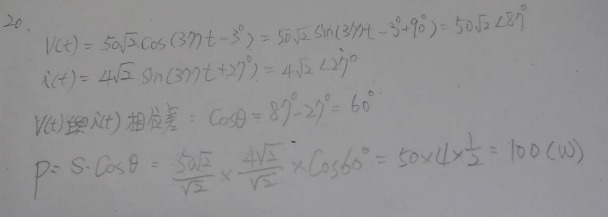 20.
V(t) = 50√2 Cos(377t-3°) = 50√2 Sin(377t-3°+90°) = 50√2∠87°
i(t) = 4√2 Sin(377t+27°) = 4√2∠27°
V(t) i(t) 相位差 : Cosθ = 87°-27° = 60°
P = S·Cosθ = 50√2/√2 × 4√2/√2 × Cos60° = 50×4×1/2 = 100(W)